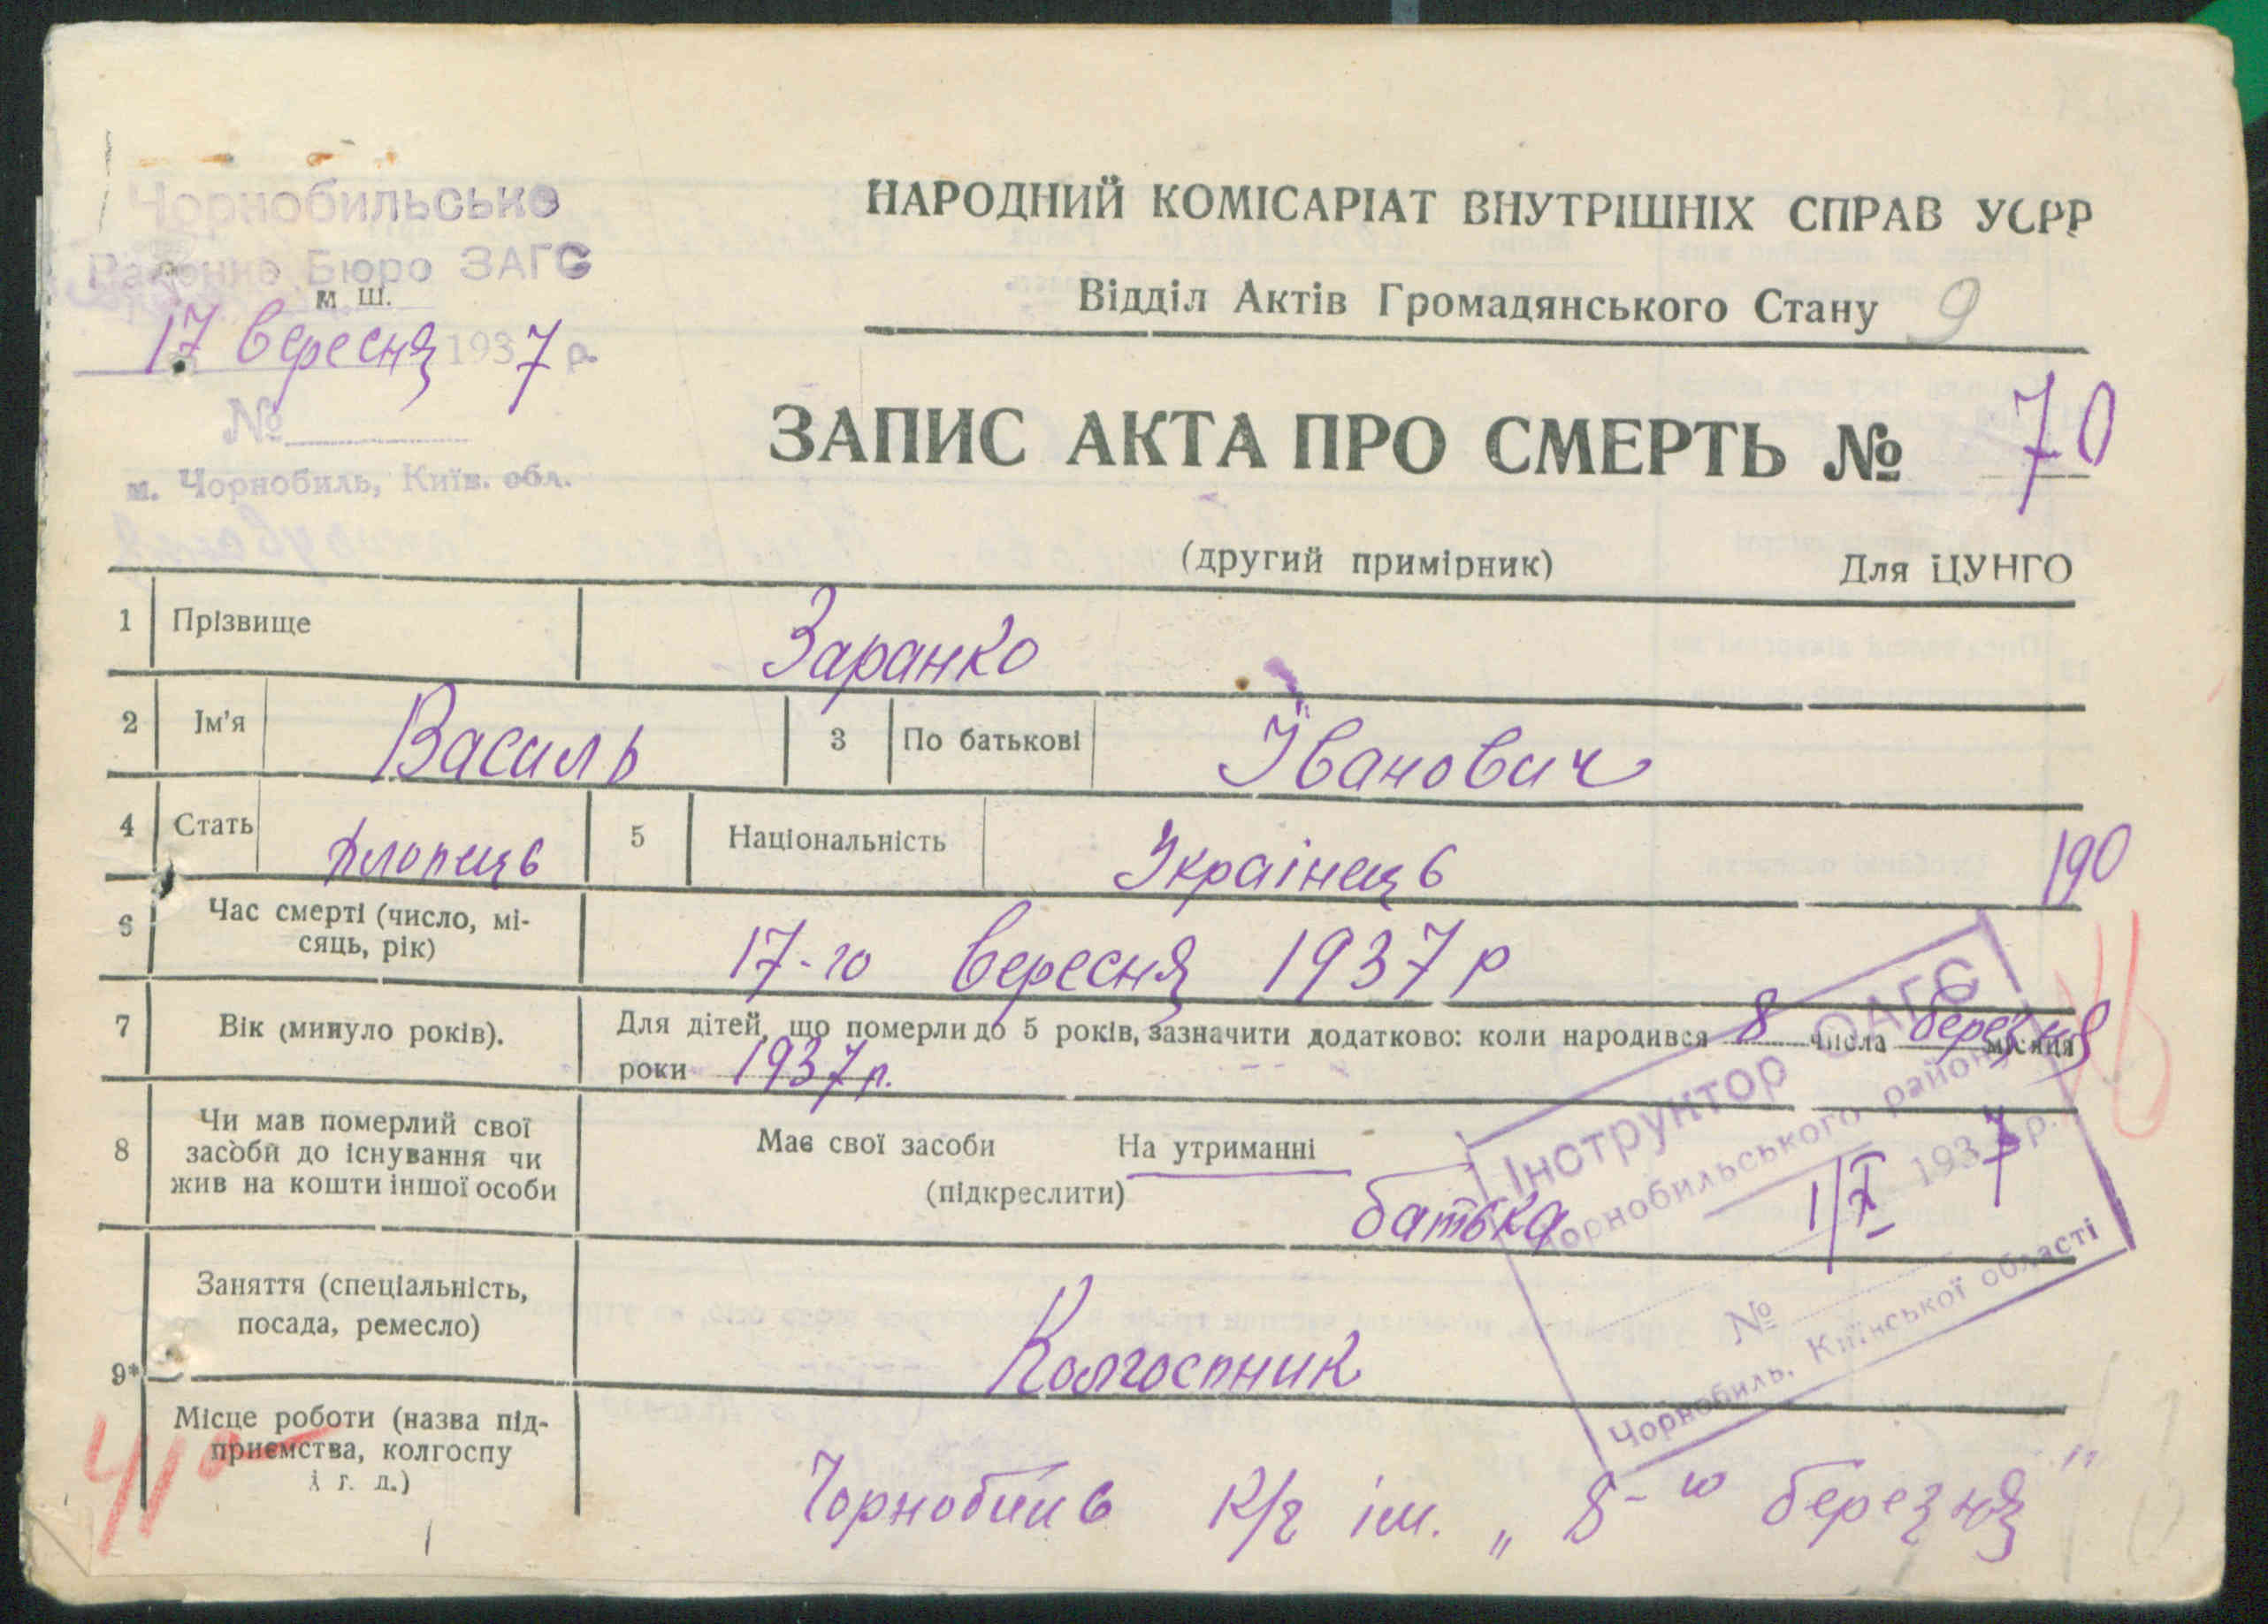 Чорнобильське
Районне Бюро ЗАГС
м ш.
17 вересня 1937 р.
№
м. Чорнобиль, Київ. обл.
НАРОДНИЙ КОМІСАРІАТ ВНУТРІШНІХ СПРАВ УСРР
Відділ Актів Громадянського Стану 9
ЗАПИС АКТА ПРО СМЕРТЬ № 70
(другий примірник) Для ЦУНГО
1 Прізвище Заранко
2 Ім'я Василь 3 По батькові Іванович
4 Стать хлопець 5 Національність Українець 190
6 Час смерті (число, мі-
сяць, рік) 17-го вересня 1937 р
7 Вік (минуло років). Для дітей, що померли до 5 років, зазначити додатково: коли народився 8 числа березня місяця
роки 1937 р.
8 Чи мав померлий свої
засоби до існування чи
жив на кошти іншої особи
Має свої засоби На утриманні
(підкреслити) батька
Інструктор ОАГС
Чорнобильського району
1/X 1937 р.
№
Чорнобиль, Київської області
9* Заняття (спеціальність,
посада, ремесло) Колгоспник
Місце роботи (назва під-
приємства, колгоспу
і т. д.)
Чорнобиль к/г ім. „8-го березня"